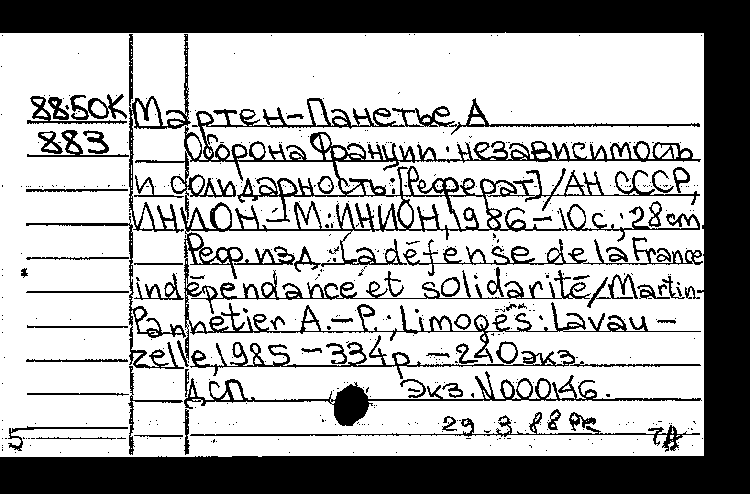 88.50К Мартен-Панетье, А
883 Оборона Франции: независимость
и солидарность: [Реферат] / АН СССР,
ИНИОН. - М.: ИНИОН, 1986. - 10 с.; 28 cm.
Реф. изд.: La défense de la France
indépendance et solidarité / Martin-
Pannetier A. - P.; Limoges: Lavau -
zelle, 1985 - 334 p. - 240 экз.
ДСП. Экз. N 000146.
29.3.88
5